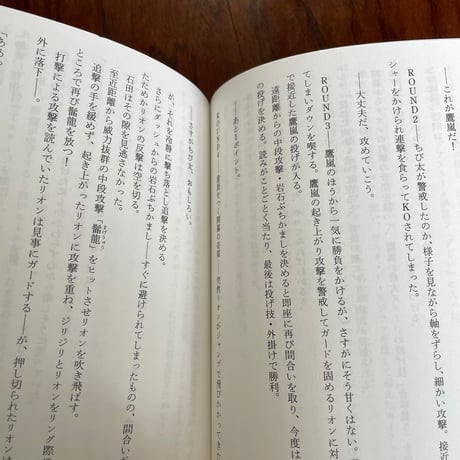 ――これが鷹嵐だ！
ROUND2――ちび太が警戒したのか、様子を見ながら軸をずらし、細かい攻撃。接近
シャーをかけられ連撃を食らってKOされてしまった。
――大丈夫だ、攻めていこう。
ROUND3――鷹嵐のほうから一気に勝負をかけるが、さすがにそう甘くはない。
てしまいダウンを喫する。鷹嵐の起き上がり攻撃を警戒してガードを固めるリオンに対
で接近した鷹嵐の投げが入る。
遠距離からの中段攻撃・岩石ぶちかましを決めると即座に再び間合いを取り、今度は
の投げを決める。読みがことごとく当たり、最後は投げ技・外掛けで勝利。
――あと1ポイント。
突然リオンがジャンプで飛びかかってきた
――さすがちび太、おもしろい。
が、それを冷静に撃ち落とし追撃を決める。
さらにダッシュからの岩石ぶちかまし――すぐに避けられてしまったものの、間合いが
たためかリオンの反撃が空を切る。
石田はその隙を見逃さなかった。
至近距離から威力抜群の中段攻撃「髷龍」をヒットさせリオンを吹き飛ばす。
追撃の手を緩めず、起き上がったリオンに攻撃を重ね、ジリジリとリオンをリング際
ところで再び髷龍を放つ！
打撃による攻撃を読んでいたリオンは見事にガードする――が、押し切られたリオンは
外に落下――。
「ああっ